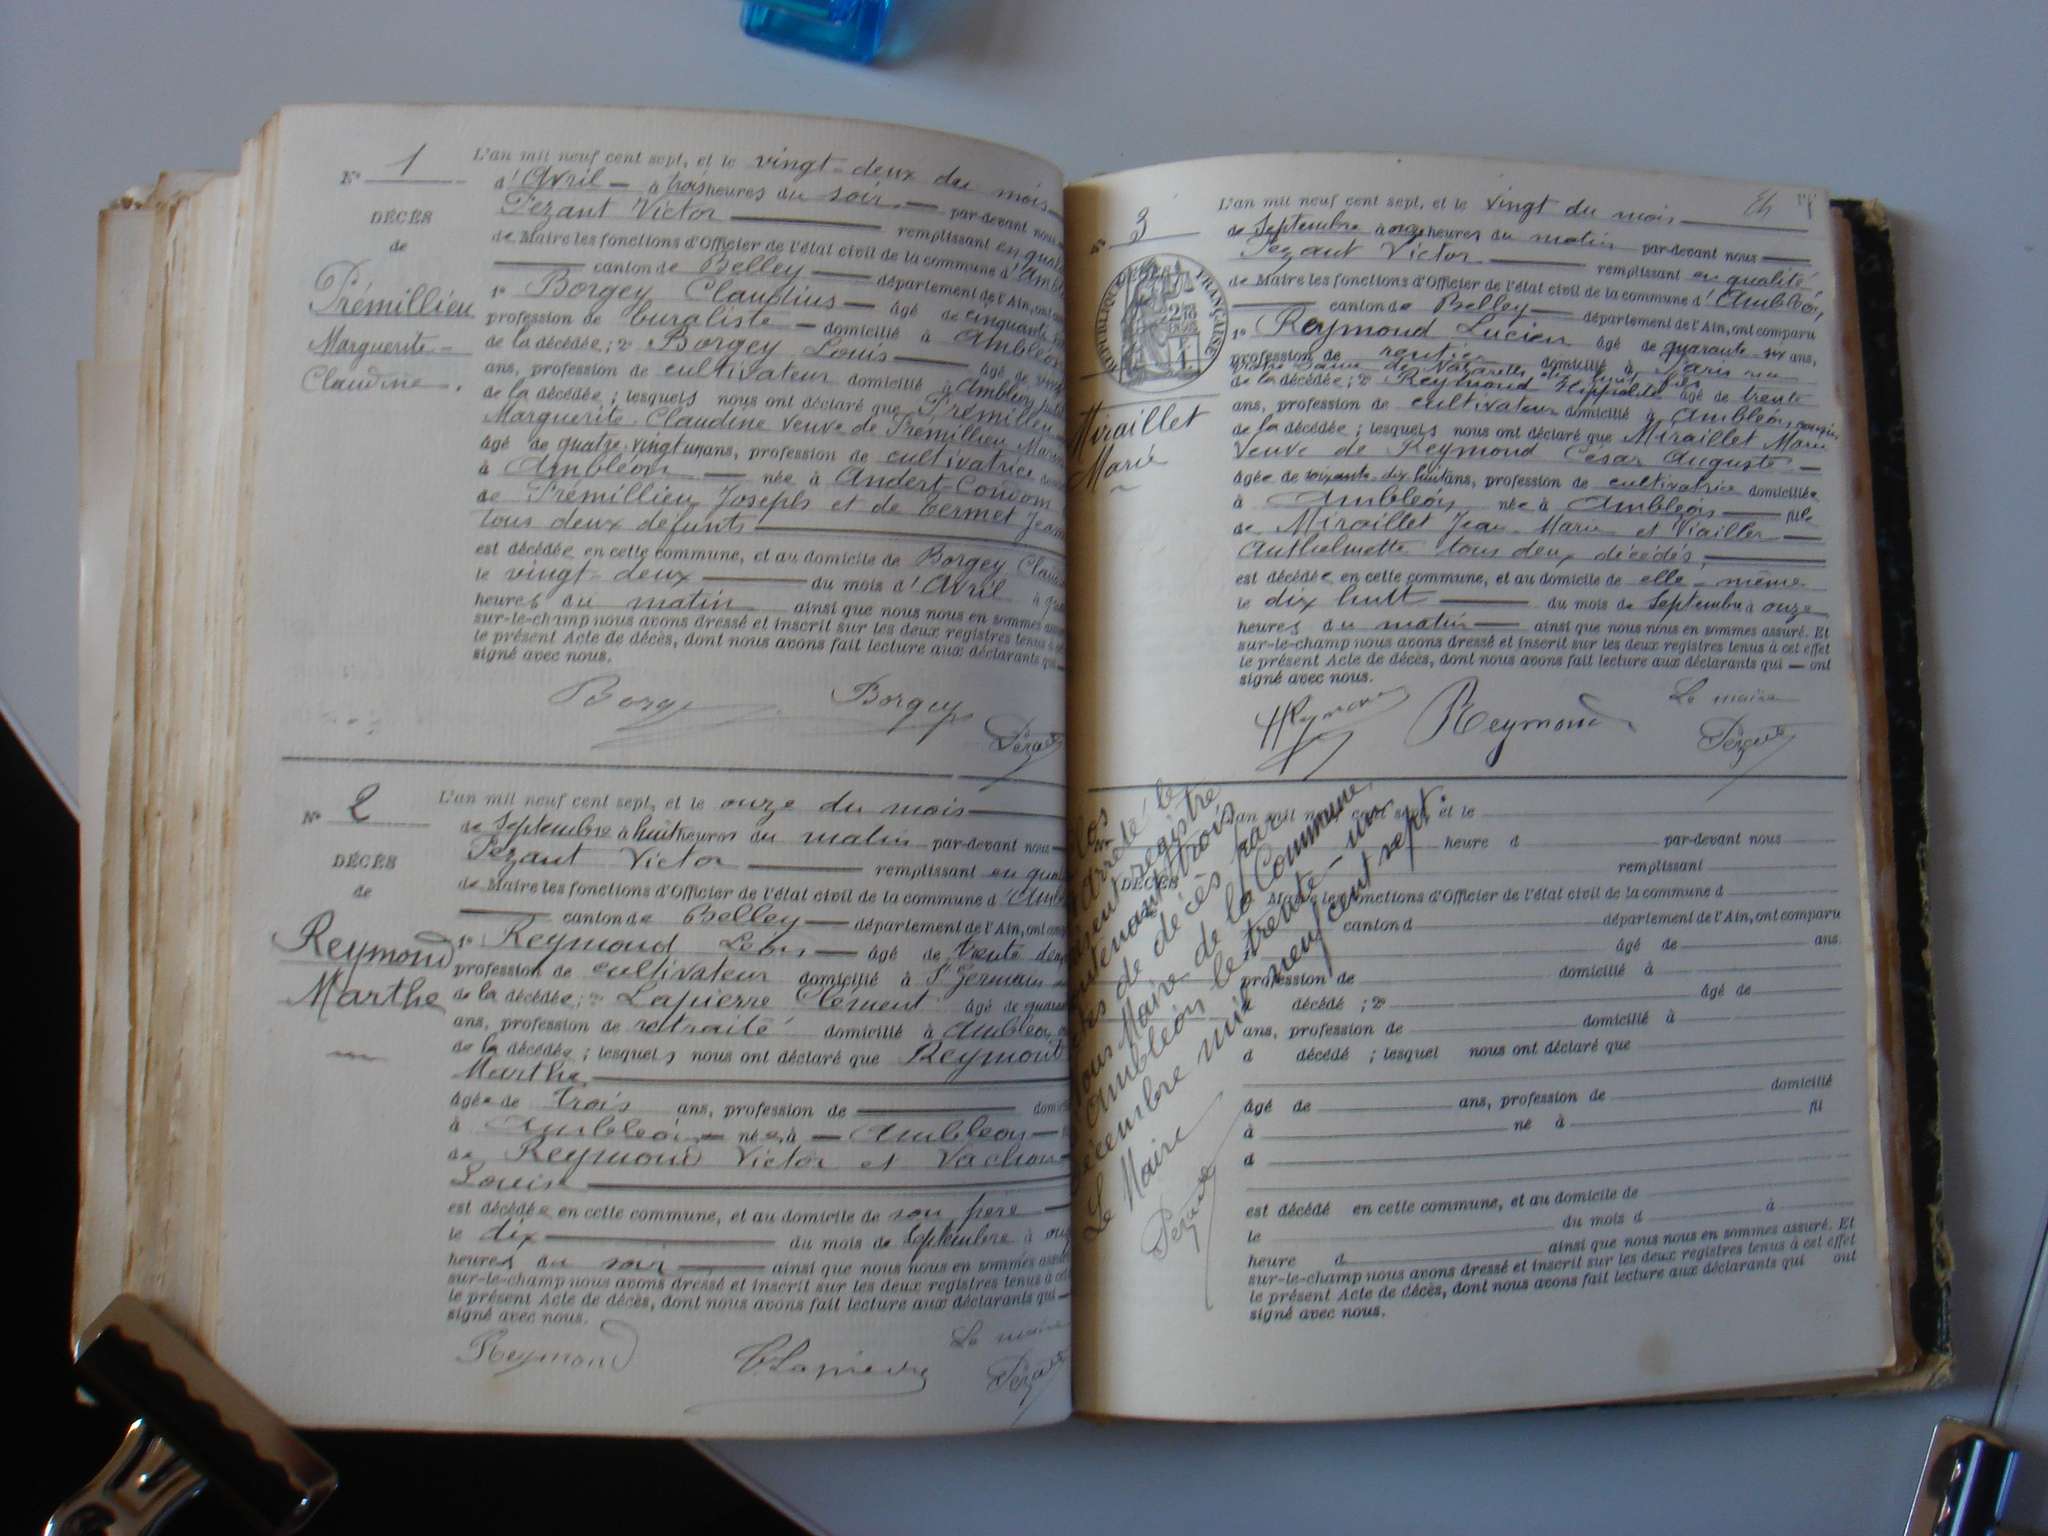 N° 1
DÉCÈS
de
Prémillieu
Marguerite
Claudine.
L'an mil neuf cent sept, et le vingt-deux du mois
d'Avril à trois heures du soir par-devant nous
Pezant Victor remplissant en
de Maire les fonctions d'Officier de l'état civil de la commune d'
canton de Belley département de l'Ain, ont
1° Borgey Claudius âgé de cinquante
profession de buraliste domicilié à Ambléon
de la décédée; 2° Borgey Louis âgé de
ans, profession de cultivateur domicilié à Ambléon
de la décédée; lesquels nous ont déclaré que Prémillieu
Marguerite Claudine Veuve de Prémillieu
âgé de quatre-vingt ans, profession de cultivatrice
à Ambléon née à Andert-Condon
de Prémillieu Joseph et de Termet
tous deux défunts
est décédée en cette commune, et au domicile de Borgey
le vingt-deux du mois d'Avril à
heures du matin ainsi que nous nous en sommes
sur-le-champ nous avons dressé et inscrit sur les deux registres tenus à
le présent Acte de décès, dont nous avons fait lecture aux déclarants qui
signé avec nous.
Borgey
N° 2
DÉCÈS
de
Reymond
Marthe
L'an mil neuf cent sept, et le onze du mois
de Septembre à huit heures du matin par-devant nous
Pezant Victor remplissant en
de Maire les fonctions d'Officier de l'état civil de la commune d'
canton de Belley département de l'Ain, ont
1° Reymond Léon âgé de trente
profession de cultivateur domicilié à St Germain
de la décédée; 2° Lapierre Clément âgé de
ans, profession de retraité domicilié à Ambléon
de la décédée; lesquels nous ont déclaré que Reymond
Marthe
âgée de trois ans, profession de
à Ambléon née à Ambléon
de Reymond Victor et Vachon
Louise
est décédée en cette commune, et au domicile de son père
le dix du mois de Septembre à
heures du soir ainsi que nous nous en sommes
sur-le-champ nous avons dressé et inscrit sur les deux registres tenus à
le présent Acte de décès, dont nous avons fait lecture aux déclarants qui
signé avec nous.
Le maire
Reymond C. Lapierre
N° 3
RÉPUBLIQUE FRANÇAISE
Miraillet
Marie
L'an mil neuf cent sept, et le vingt du mois
de Septembre à onze heures du matin par-devant nous
Pezant Victor remplissant en qualité
de Maire les fonctions d'Officier de l'état civil de la commune d'Ambléon,
canton de Belley département de l'Ain, ont comparu
1° Reymond Lucien âgé de quarante-six ans,
profession de rentier domicilié à Paris rue
de la décédée; 2° Reymond Hippolite âgé de trente
ans, profession de cultivateur domicilié à Ambléon, cousin
de la décédée; lesquels nous ont déclaré que Miraillet Marie
Veuve de Reymond César Auguste
âgée de soixante-dix huit ans, profession de cultivatrice domiciliée
à Ambléon née à Ambléon fille
de Miraillet Jean-Marie et Viallet
Anthelmette tous deux décédés,
est décédée en cette commune, et au domicile de elle-même
le dix huit du mois de Septembre à onze
heures du matin ainsi que nous nous en sommes assuré. Et
sur-le-champ nous avons dressé et inscrit sur les deux registres tenus à cet effet
le présent Acte de décès, dont nous avons fait lecture aux déclarants qui ont
signé avec nous.
Le maire
Reymond
arrêté le
registre
trois
actes de décès par
Nous Maire de la Commune
d'Ambléon le trente-un
Décembre mil neuf cent sept.
Le Maire
DÉCÈS
L'an mil neuf cent sept, et le
heure d par-devant nous
remplissant
Maire les fonctions d'Officier de l'état civil de la commune d
canton d département de l'Ain, ont comparu
âgé de ans.
profession de domicilié à
d décédé ; 2° âgé de
ans, profession de domicilié à
d décédé ; lesquel nous ont déclaré que
âgé de ans, profession de domicilié
à né à fil
d
est décédé en cette commune, et au domicile de
le du mois d à
heure d ainsi que nous nous en sommes assuré. Et
sur-le-champ nous avons dressé et inscrit sur les deux registres tenus à cet effet
le présent Acte de décès, dont nous avons fait lecture aux déclarants qui ont
signé avec nous.